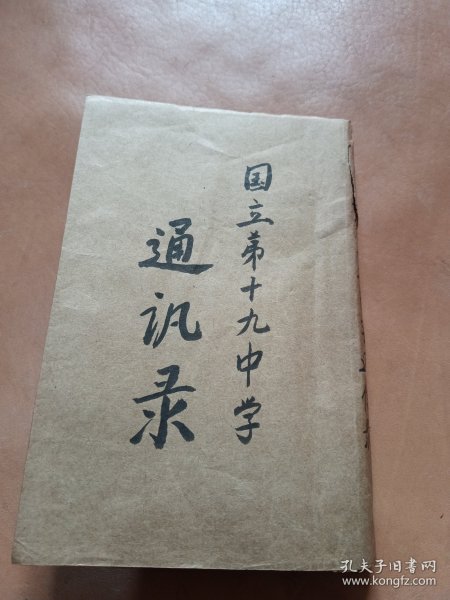 国立第十九中学
通讯录
孔夫子旧书网
www.kongfz.com